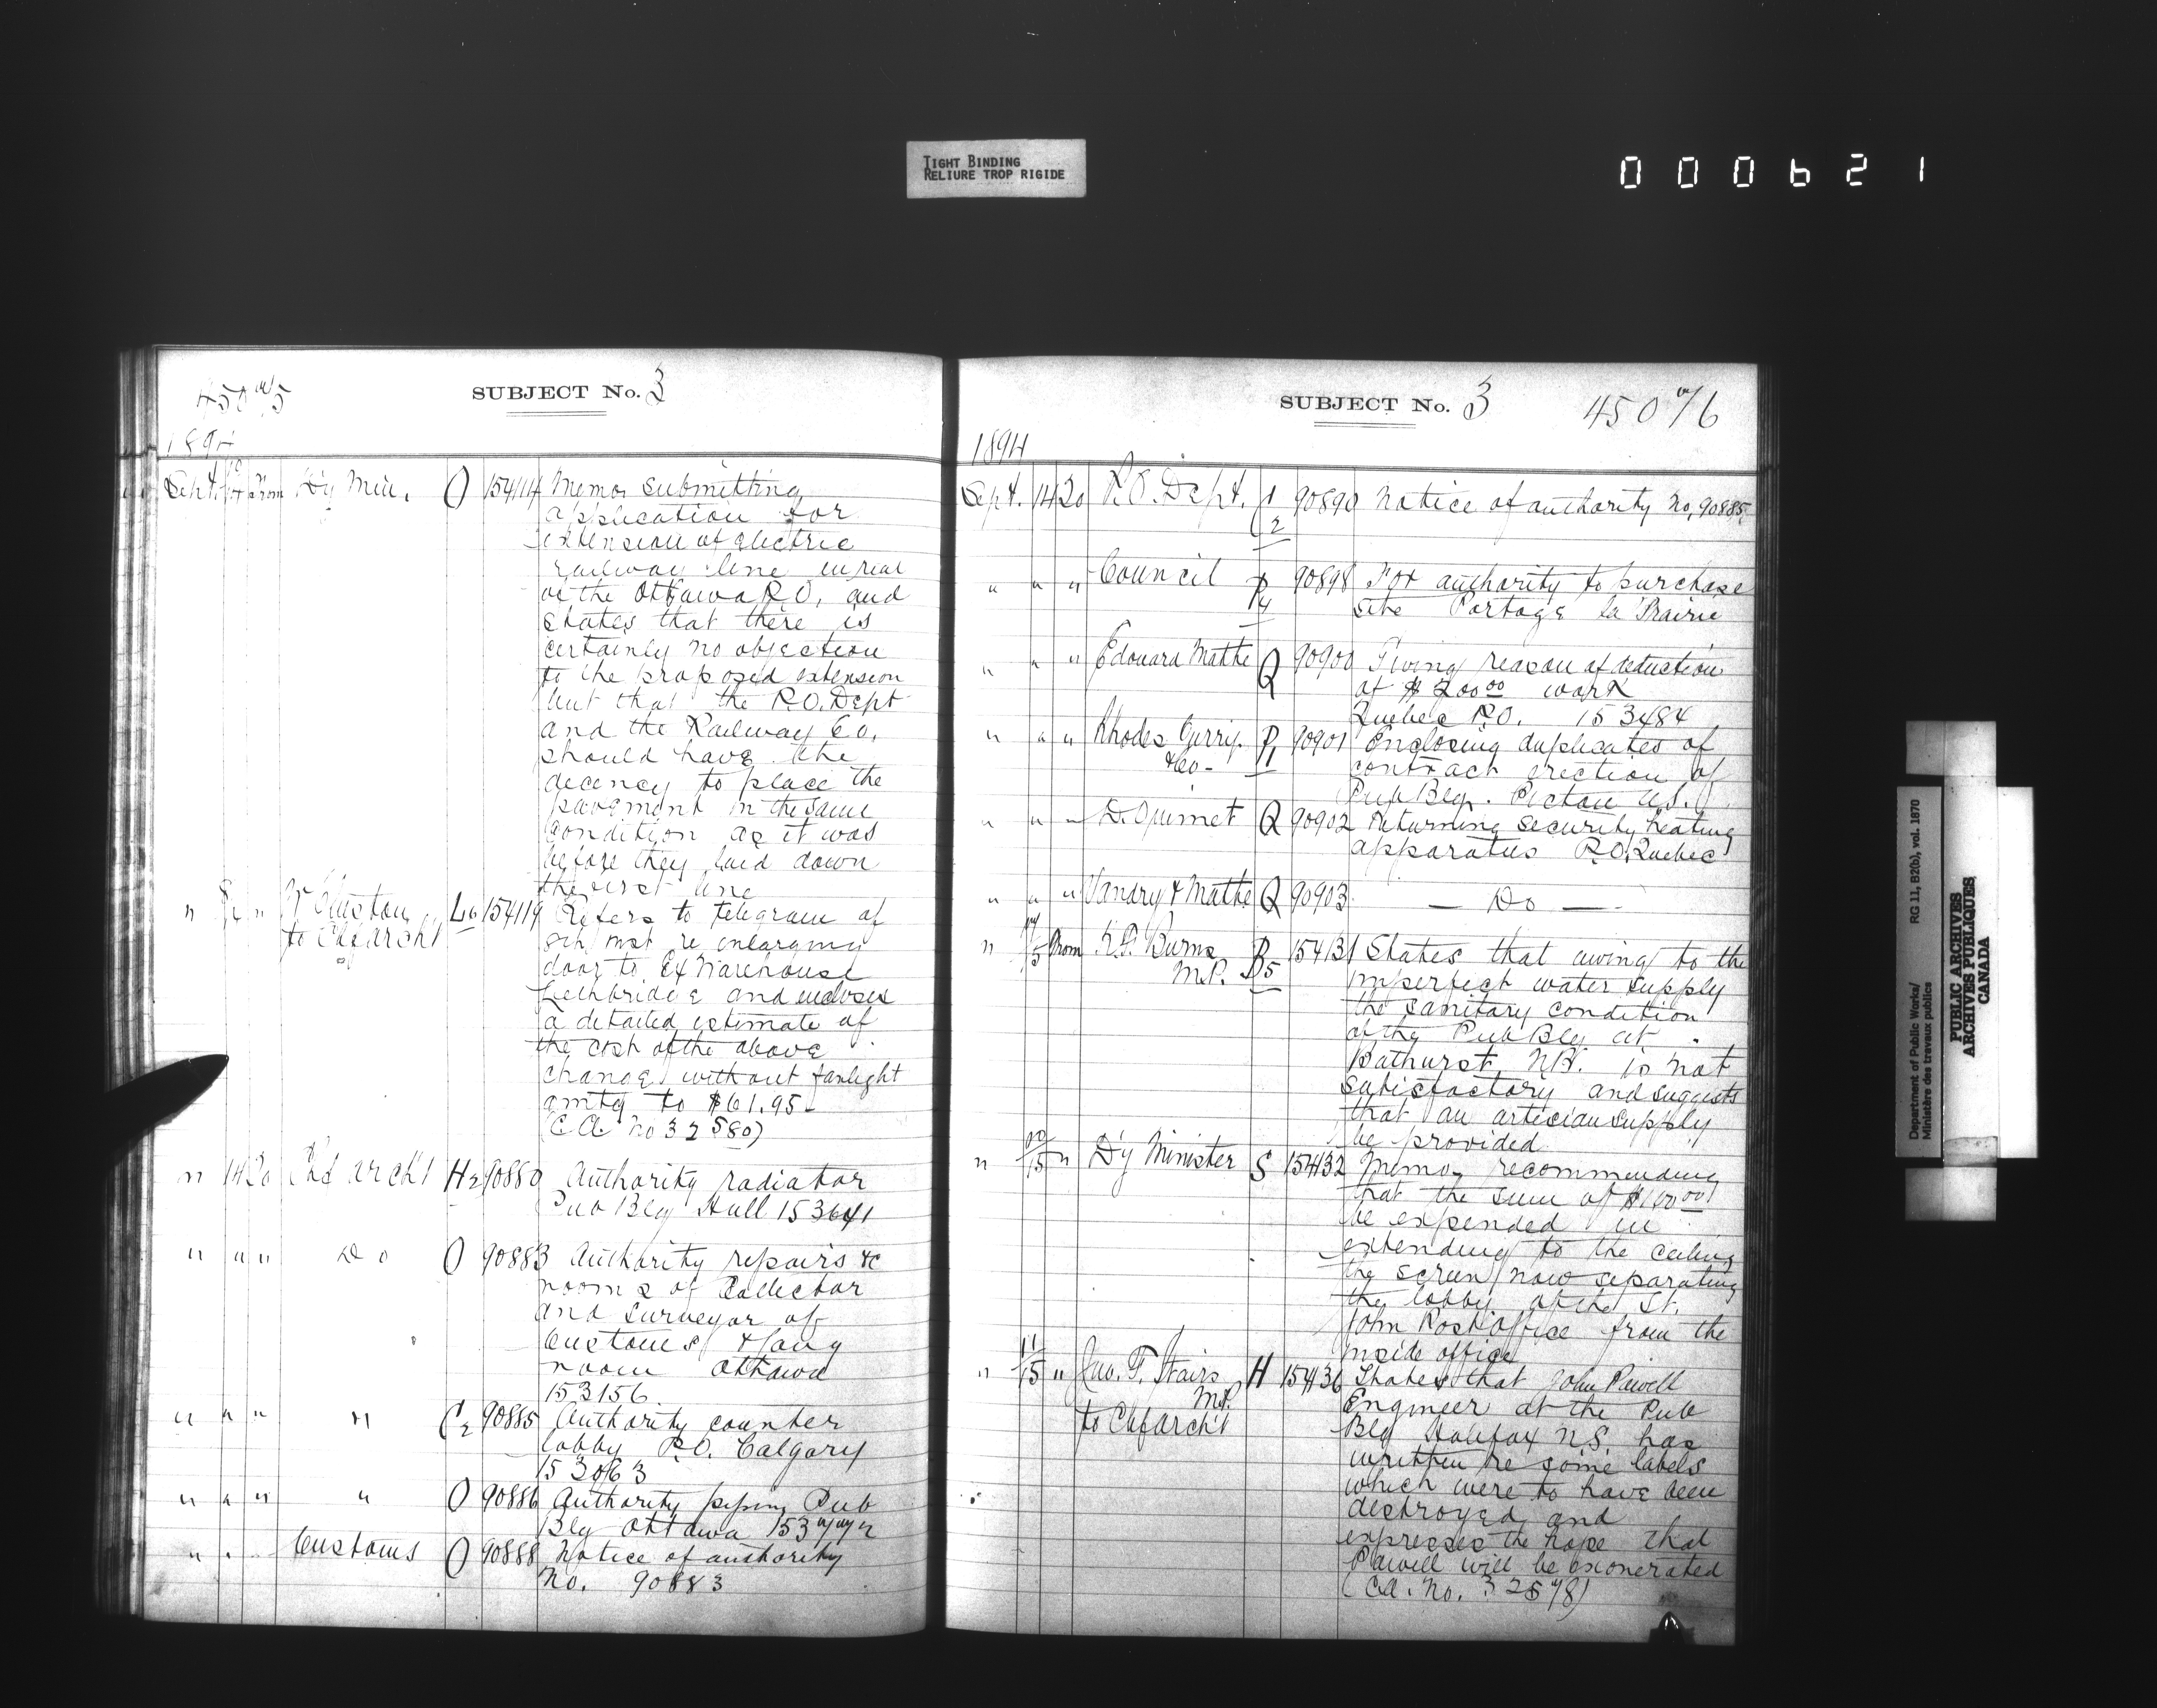 TIGHT BINDING
RELIURE TROP RIGIDE
000621
SUBJECT No. 3
1894
Sept. From Dy Min. O 154114 Memo submitting
application for
extension of electric
railway line in rear
of the Ottawa P.O. and
states that there is
certainly no objection
to the proposed extension
but that the P.O. Dept
and the Railway Co.
should have the
decency to place the
pavement in the same
condition as it was
before they laid down
the first line
" " to Chf archt L6 154119 Refers to telegram of
inst re enlarging
door to Ex Warehouse
Lethbridge and encloses
a detailed estimate of
the cost of the above
change without fanlight
amtg to $61.95
(C.A. No 32580)
" 14 20 Chf archt H2 90880 Authority radiator
Pub Blg Hull 153641
" " " Do O 90883 Authority repairs &c
rooms of Collector
and surveyor of
Customs & long
room Ottawa
153156
" " " " C2 90885 Authority counter
lobby P.O. Calgary
153063
" " " " O 90886 Authority piping Pub
Blg Ottawa 153772
" " Customs O 90888 Notice of authority
No. 90883
SUBJECT No. 3 45076
1894
Sept. 14 20 P.O. Dept. C2 90890 Notice of authority No. 90885
" " " Council P4 90898 For authority to purchase
site Portage la Prairie
" " " Edouard Mathe Q 90900 Giving reason of deduction
of $200.00 work
Quebec P.O. 153484
" " " Rhodes Curry P1 90901 Enclosing duplicates of
& Co- contract erection of
Pub Blg. Pictou N.S.
" " " D. Ouimet Q 90902 Returning security heating
apparatus P.O. Quebec
" " " Vandry & Mathe Q 90903 — Do —
" 15 From K.F. Burns B5 154131 States that owing to the
M.P. imperfect water supply
the sanitary condition
of the Pub Blg at
Bathurst, N.B. is not
satisfactory and suggests
that an artesian supply
be provided
" 15 " Dy Minister S 154132 Memo recommending
that the sum of $100.00
be expended in
extending to the ceiling
the screen now separating
the lobby of the St.
John Post Office from the
inside office
" 11/15 " Jno. F. Stairs H 154136 States that John Powell
M.P. Engineer at the Pub
to Chf archt Blg Halifax N.S. has
written re some labels
which were to have been
destroyed and
expresses the hope that
Powell will be exonerated
(C.A. No. 32578)
Department of Public Works/ RG 11, B2(b), vol. 1870
Ministère des travaux publics
PUBLIC ARCHIVES
ARCHIVES PUBLIQUES
CANADA